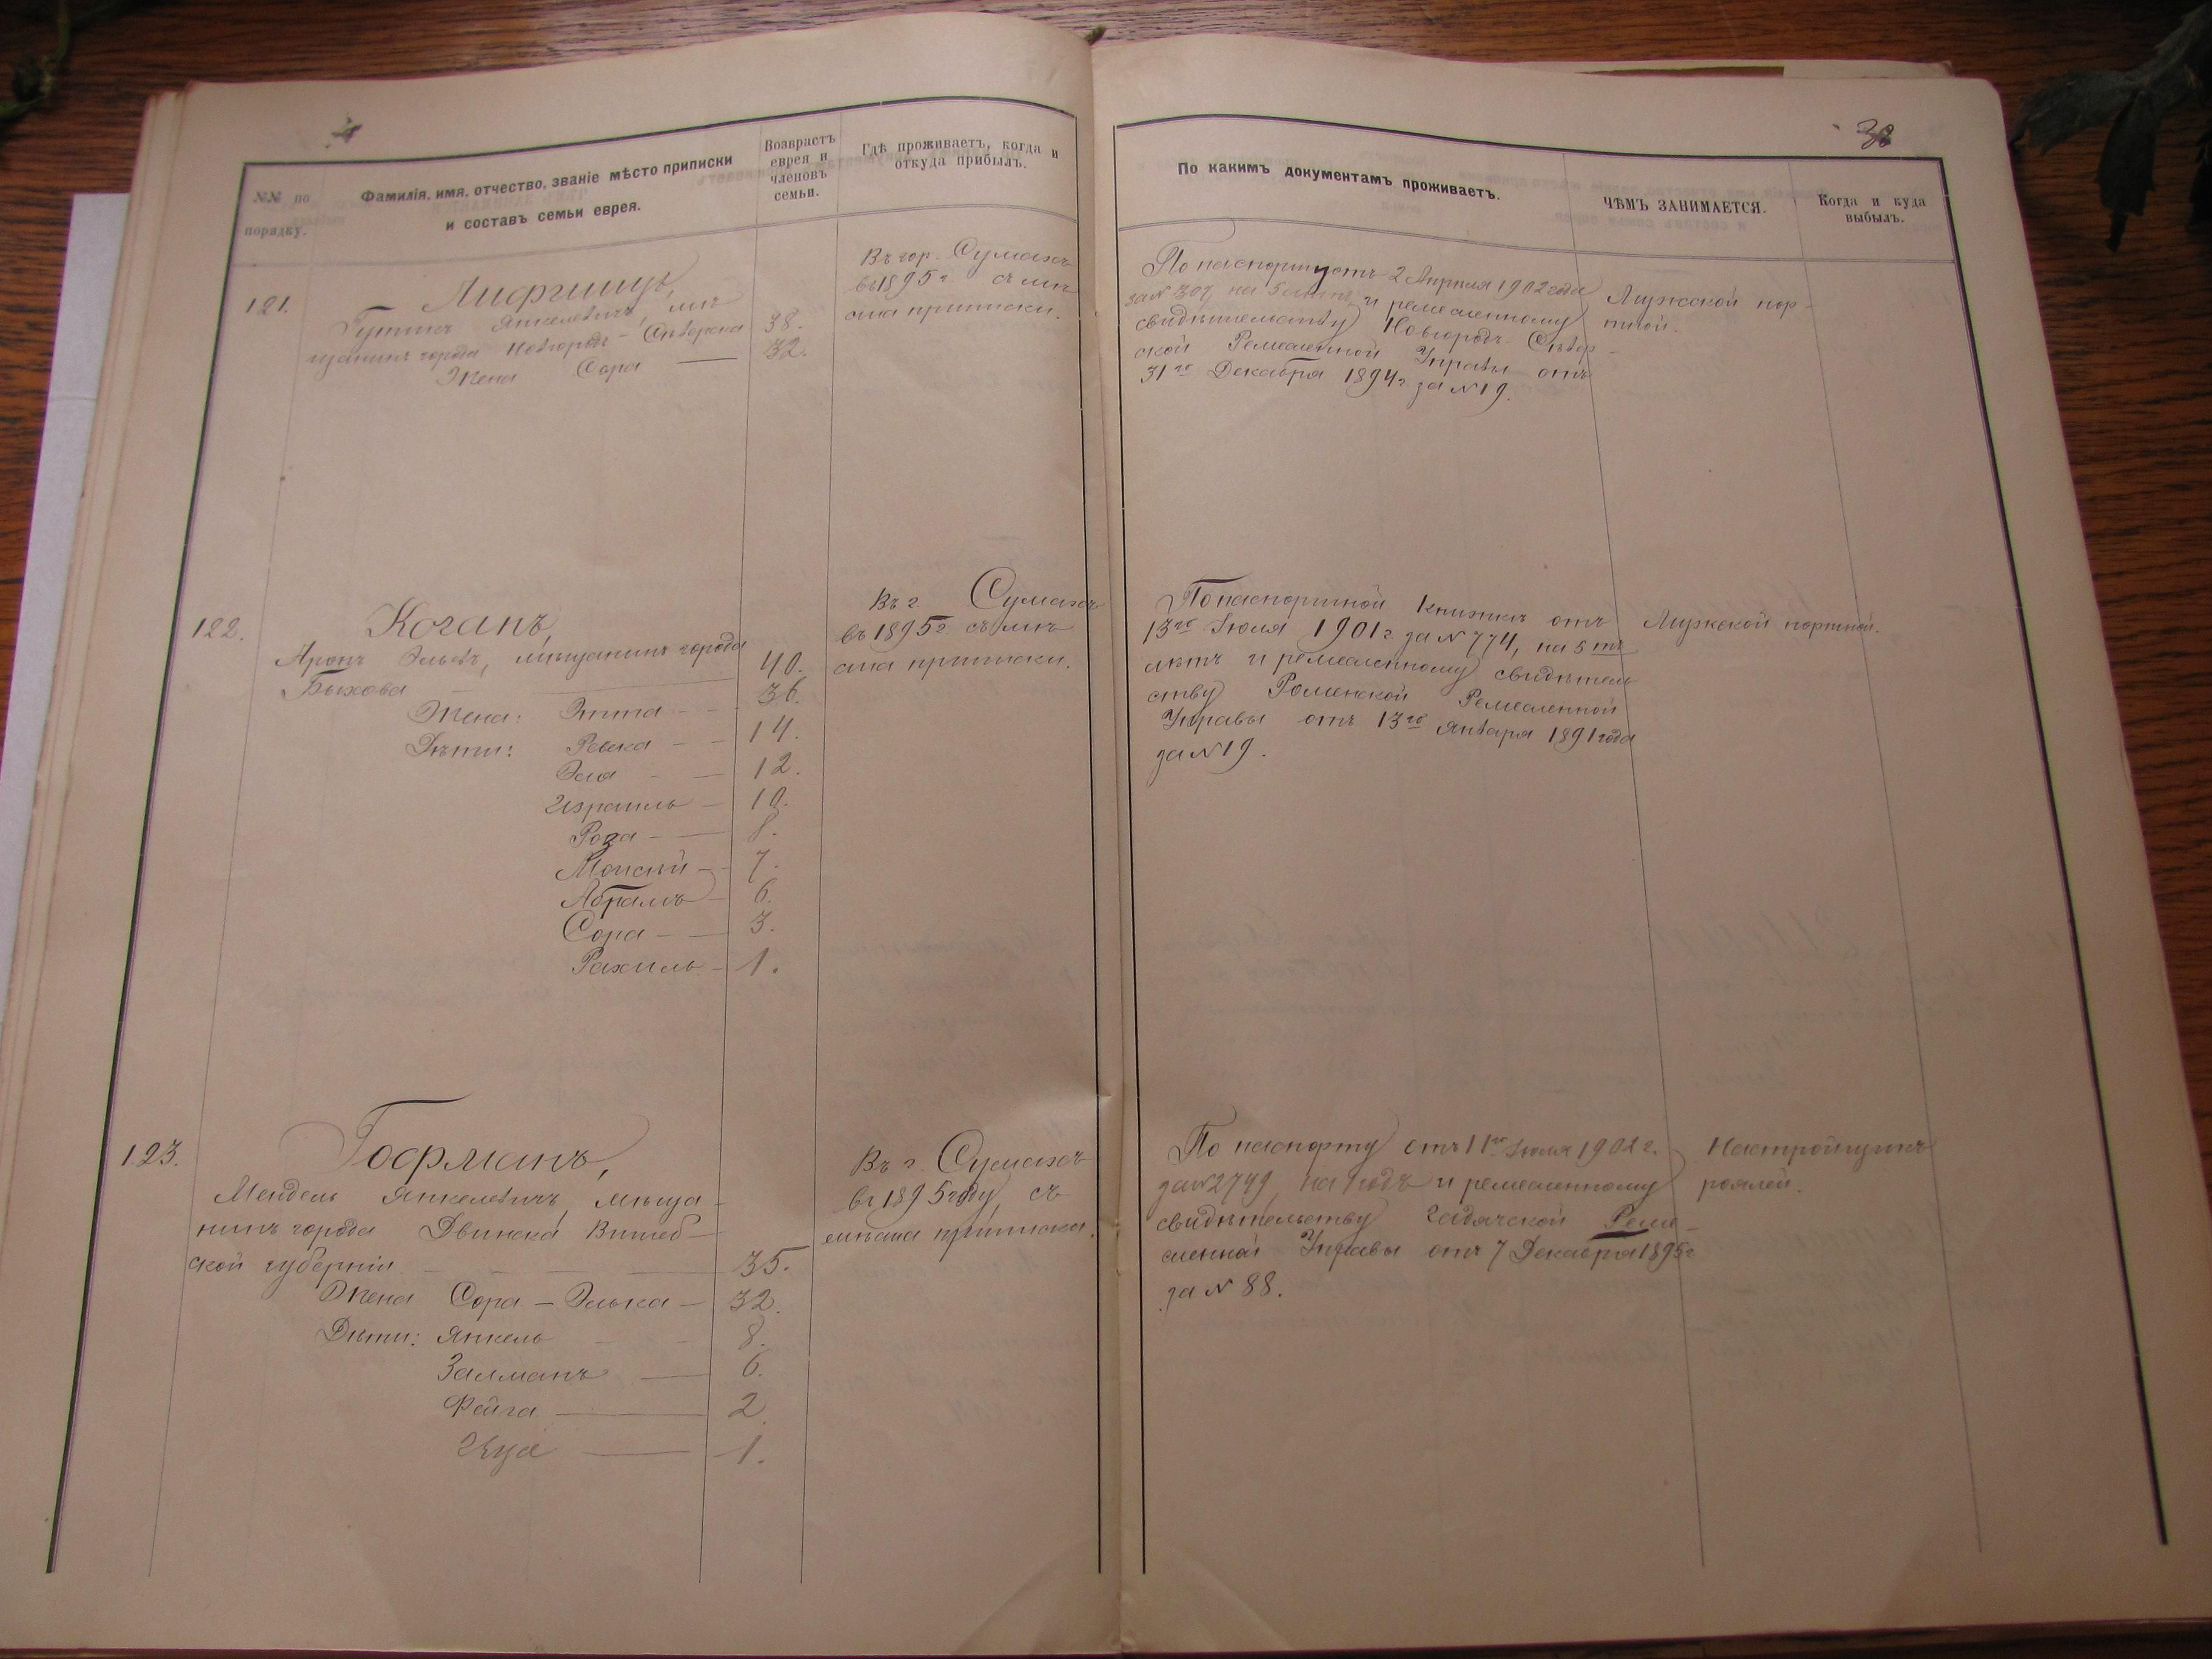 38
№№ по порядку.
Фамилія, имя, отчество, званіе мѣсто приписки
и составъ семьи еврея.
Возврастъ
еврея и
членовъ
семьи.
Гдѣ проживаетъ, когда и
откуда прибылъ.
По какимъ документамъ проживаетъ.
ЧѢМЪ ЗАНИМАЕТСЯ.
Когда и куда
выбылъ.
121.
Лифшицъ,
Янкелевичъ, мѣ
щанинъ города Новгородъ-Сѣверска 38.
Жена Сора 32.
Въ гор. Сумахъ
въ 1895 г. съ мѣ
ста приписки.
По паспорту отъ 2 Апрѣля 1902 года
за № 307, на 5 лѣтъ, и ремесленному
свидѣтельству Новгородъ-Сѣвер
ской Ремесленной Управы отъ
31го Декабря 1894 г. за № 19.
Мужской пор-
тной.
122.
Коганъ,
Аронъ Эльевъ, мѣщанинъ города
Быхова 40.
Жена: Этта 36.
Дѣти: Ревека 14.
Эля 12.
Израиль 10.
Роза 8.
Моисей 7.
Абрамъ 6.
Сора 3.
Рахиль 1.
Въ г. Сумахъ
въ 1895 г. съ мѣ
ста приписки.
По паспортной книжкѣ отъ
13го Іюля 1901 г. за № 774, на 5 ть
лѣтъ и ремесленному свидѣтель
ству Роменской Ремесленной
Управы отъ 13го Января 1891 года
за № 19.
Мужской портной.
123.
Гофманъ,
Мендель Янкелевичъ, мѣща-
нинъ города Двинска Витеб-
ской губерніи 35.
Жена Сора-Элька 32.
Дѣти: Янкель 8.
Залманъ 6.
Фейга 2
1.
Въ г. Сумахъ
въ 1895 году, съ
мѣста приписки.
По паспорту отъ 11го Іюля 1902 г.
за № 2749, на 1 годъ и ремесленному
свидѣтельству Гадячской Реме-
сленной Управы отъ 7 Декабря 1895 г
за № 88.
Настройщикъ
роялей.